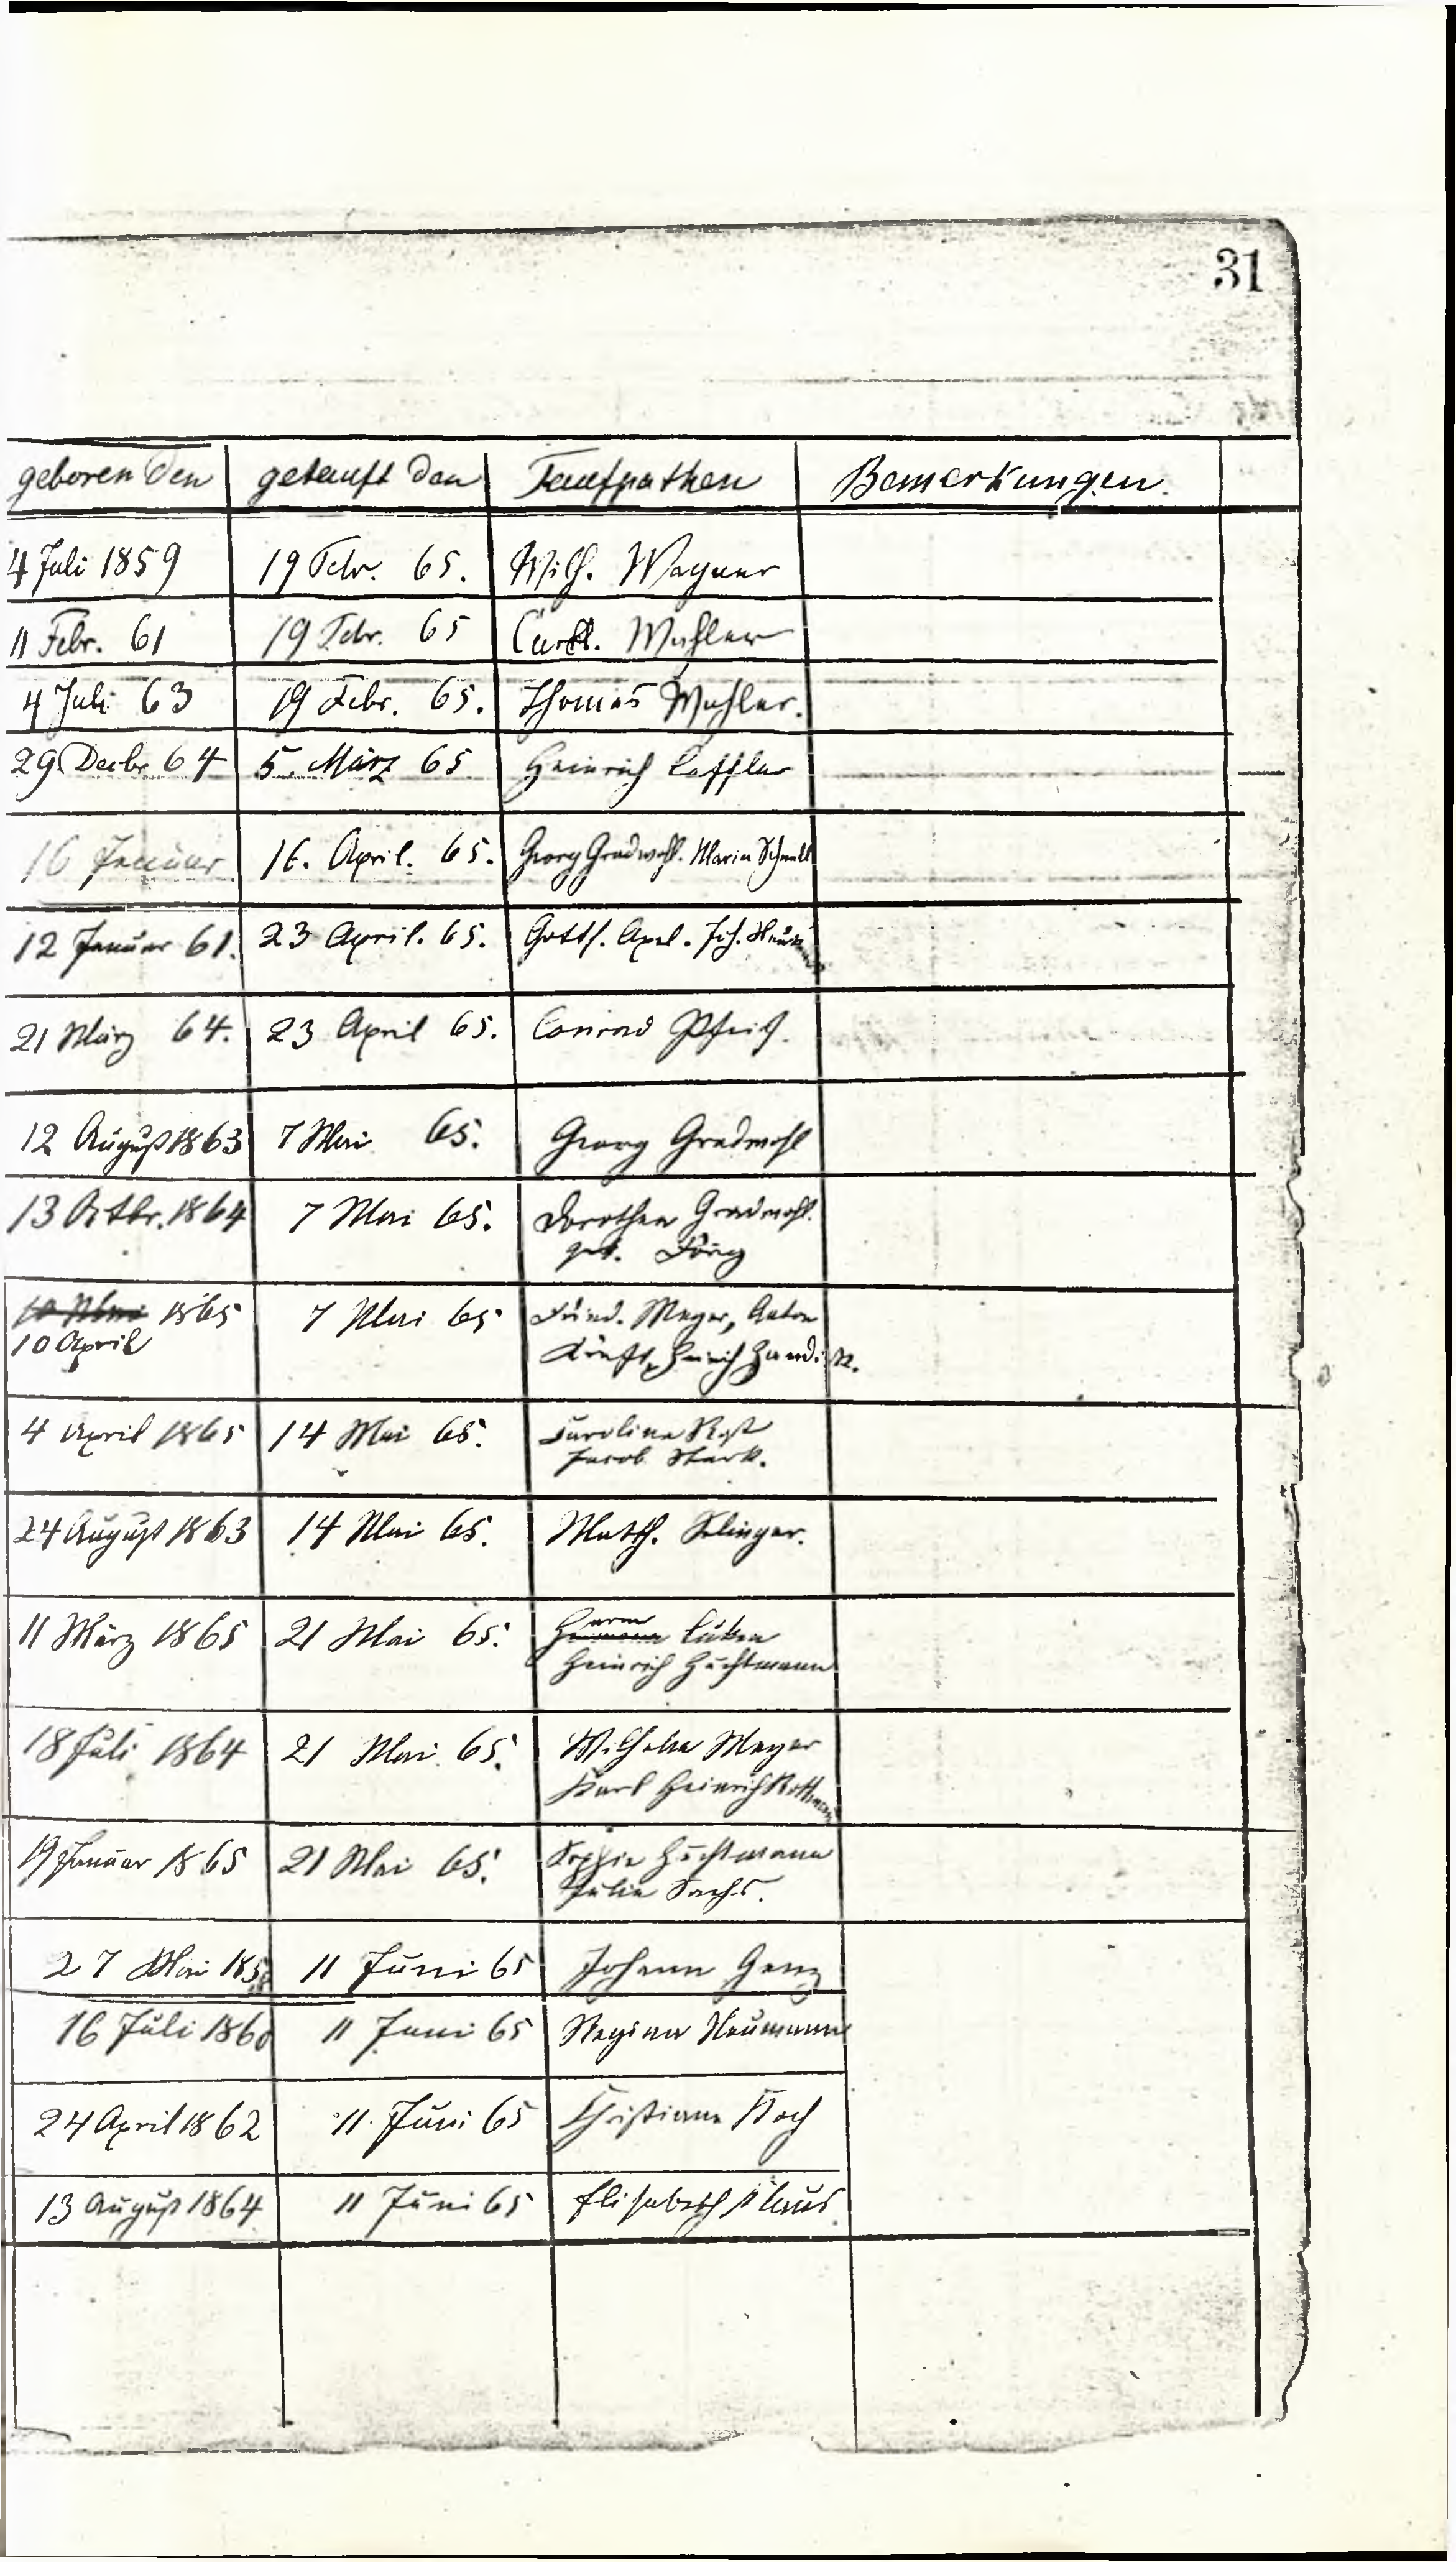 31
geboren den getauft den Taufpathen Bemerkungen.
4 Juli 1859 19 Febr. 65. Wilh. Wagner
11 Febr. 61 19 Febr. 65 Mahler
4 Juli 63 19 Febr. 65. Thomas Mahler.
29 Decbr 64 5. März 65 Heinrich Loffler
16 Januar 16. April. 65. Georg Gradwohl. Maria Schnell
12 Januar 61. 23 April. 65. Gottf. Apel. Joh.
21 März 64. 23 April 65. Conrad
12 August 1863 7 Mai 65. Georg Gradwohl
13 Octbr. 1864 7 Mai 65. Dorothea Gradwohl.
geb.
10 Mai 1865 7 Mai 65 Fried. Meyer, Anton
10 April
Heinrich
4 April 1865 14 Mai 65. Carolina Rost
Jacob Stark.
24 August 1863 14 Mai 65. Matth. Selinger.
11 März 1865 21 Mai 65. Harm Lüken
Heinrich Huchtmann
18 Juli 1864 21 Mai 65. Wilhelm Meyer
Karl Heinrich Rottmann
19 Januar 1865 21 Mai 65. Sophie Huchtmann
Julie Sachs.
27 Mai 11 Juni 65 Johann Genz
16 Juli 1860 11 Juni 65 Regina Neumann
24 April 1862 11 Juni 65 Christiana Koch
13 August 1864 11 Juni 65 Elisabeth Klaus.